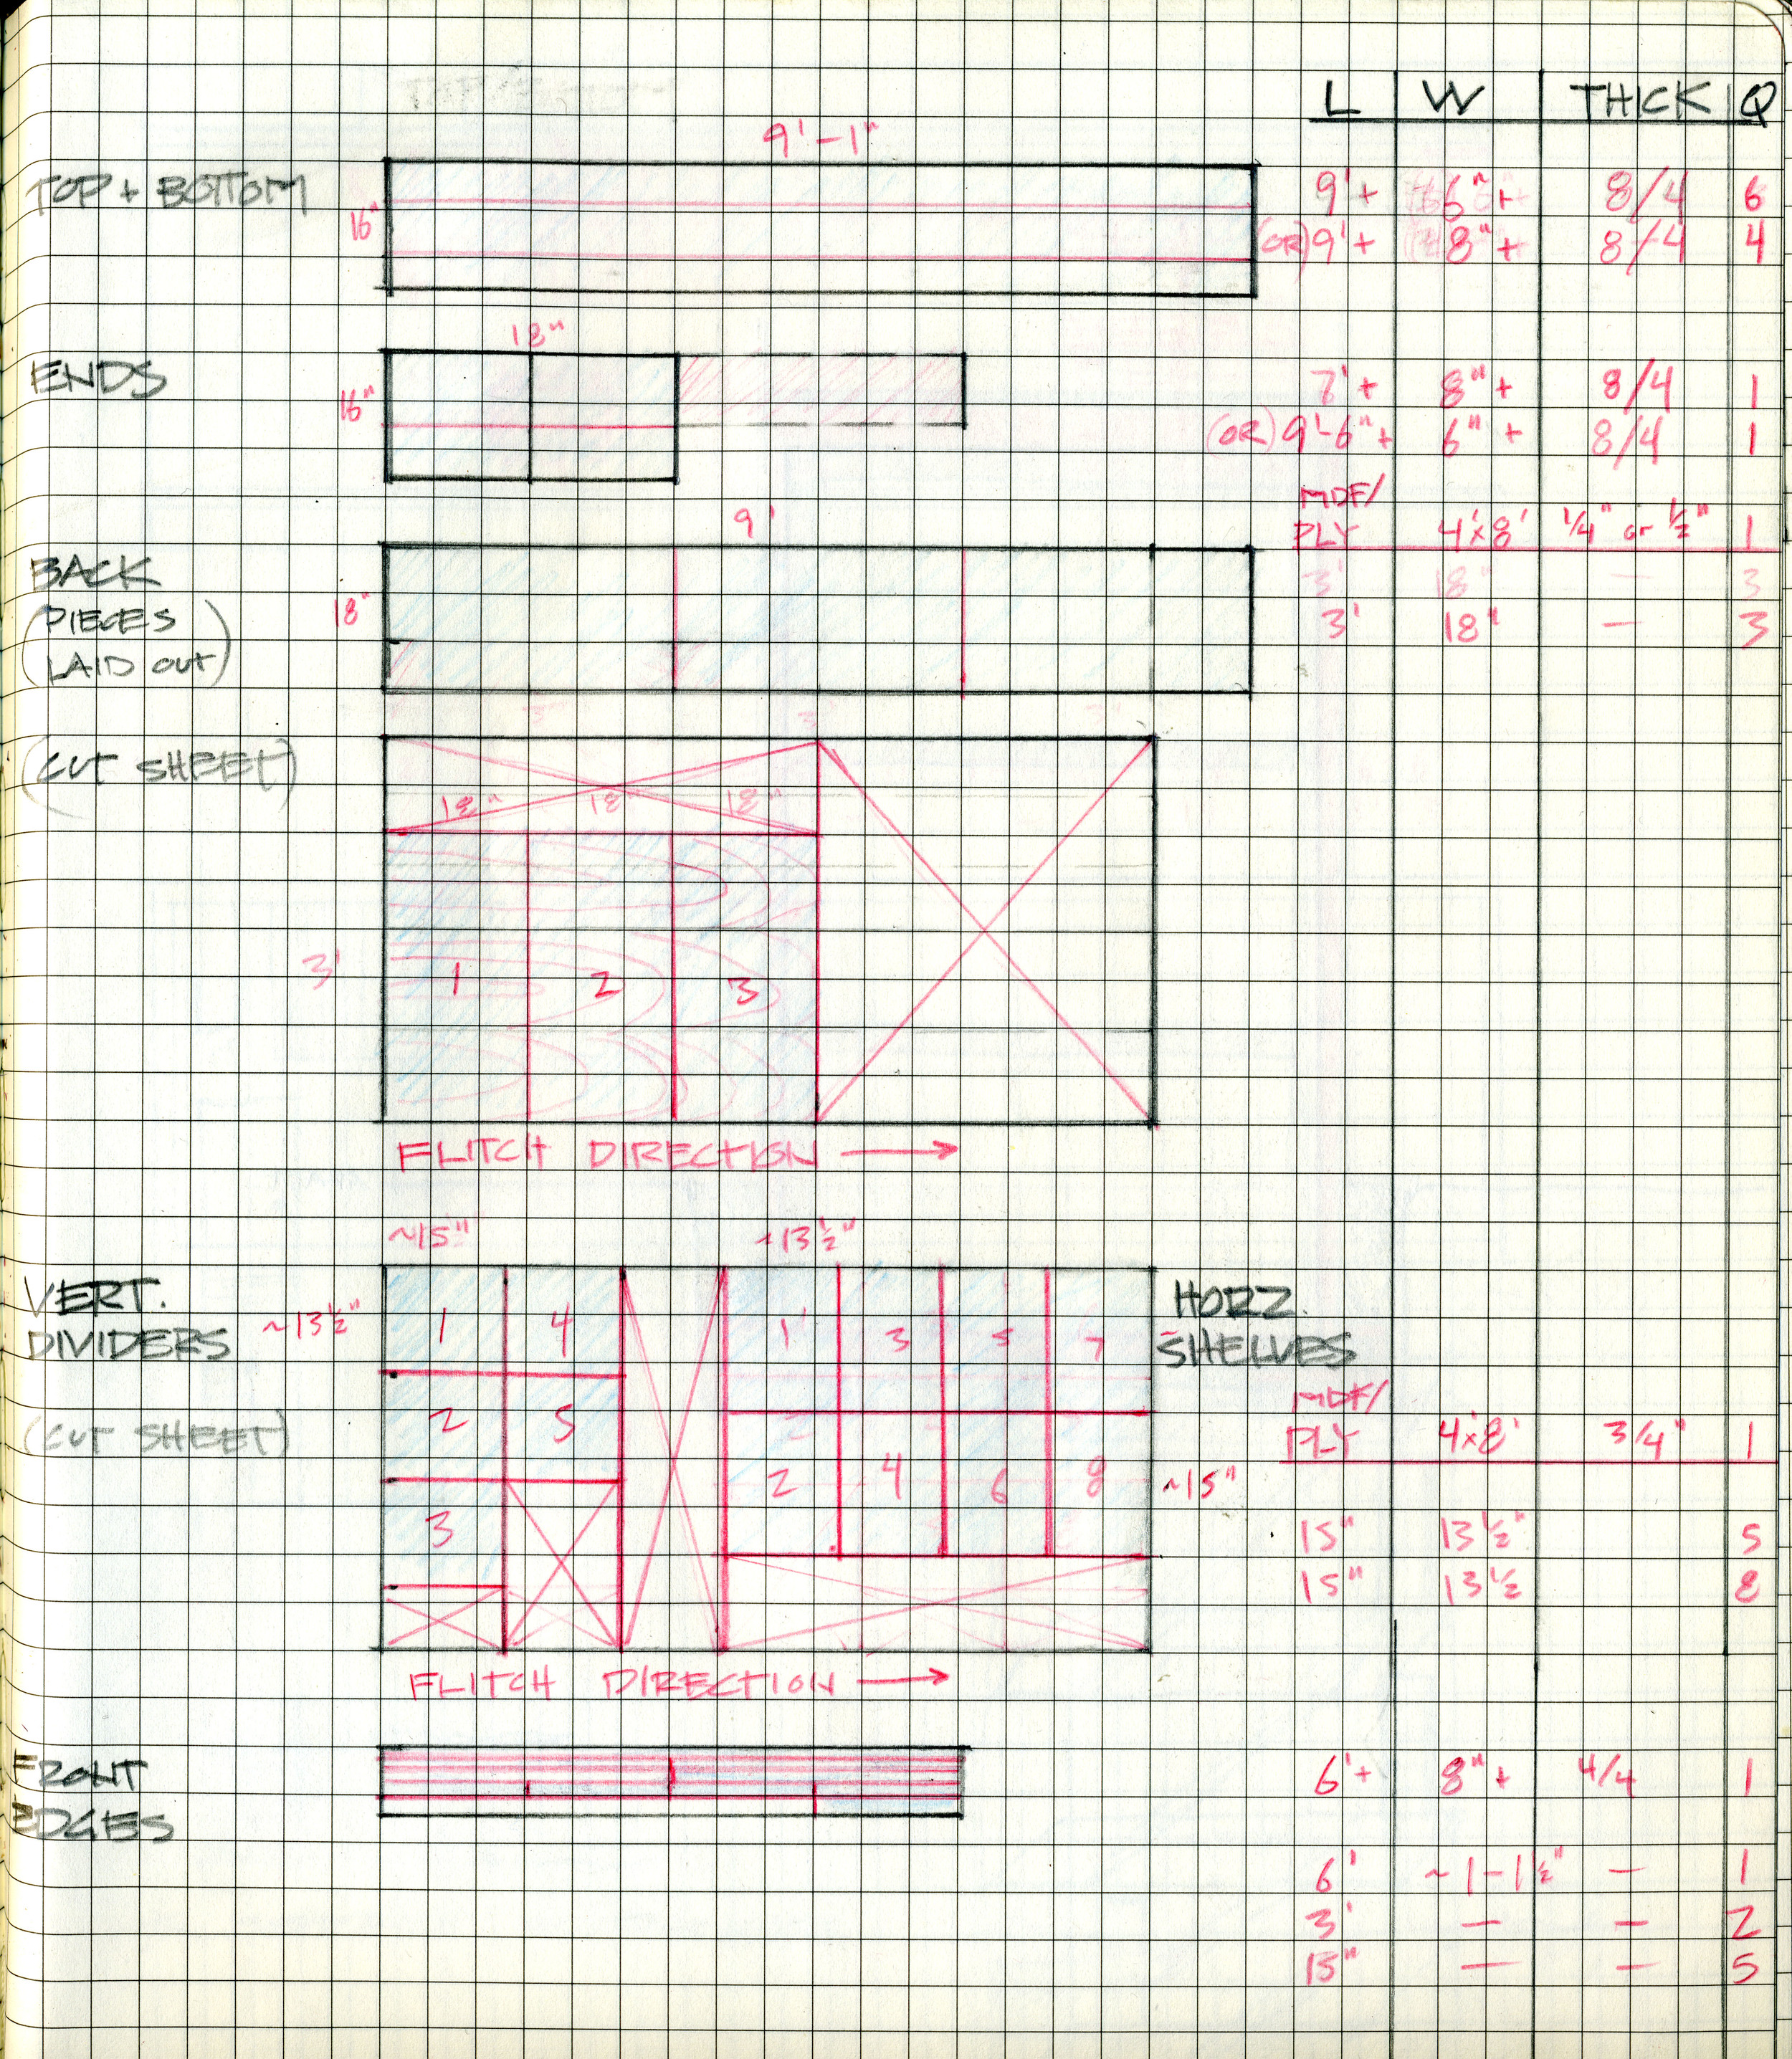 L W THICK Q
9'-1"
TOP + BOTTOM
16"
9'+ 6"+ 8/4 6
(OR) 9'+ 8"+ 8/4 4
18"
ENDS
16"
7'+ 8"+ 8/4 1
(OR) 9'-6"+ 6"+ 8/4 1
MDF/
PLY 4'x8' 1/4" or 1/2" 1
9'
BACK
(PIECES
LAID OUT)
18"
3' 18" — 3
3' 18" — 3
3' 3' 3'
(CUT SHEET)
18" 18 18"
3'
1 2 3
FLITCH DIRECTION →
~15" ~13½"
VERT.
DIVIDERS
~13½"
1 4 1 3 5 7
HORZ.
SHELVES
(CUT SHEET)
2 5
MDF/
PLY 4'x8' 3/4" 1
3
2 4 6 8
~15"
15" 13½" 5
15" 13½ 8
FLITCH DIRECTION →
FRONT
EDGES
6'+ 8"+ 4/4 1
6' ~1-1½" — 1
3' — — 2
15" — — 5